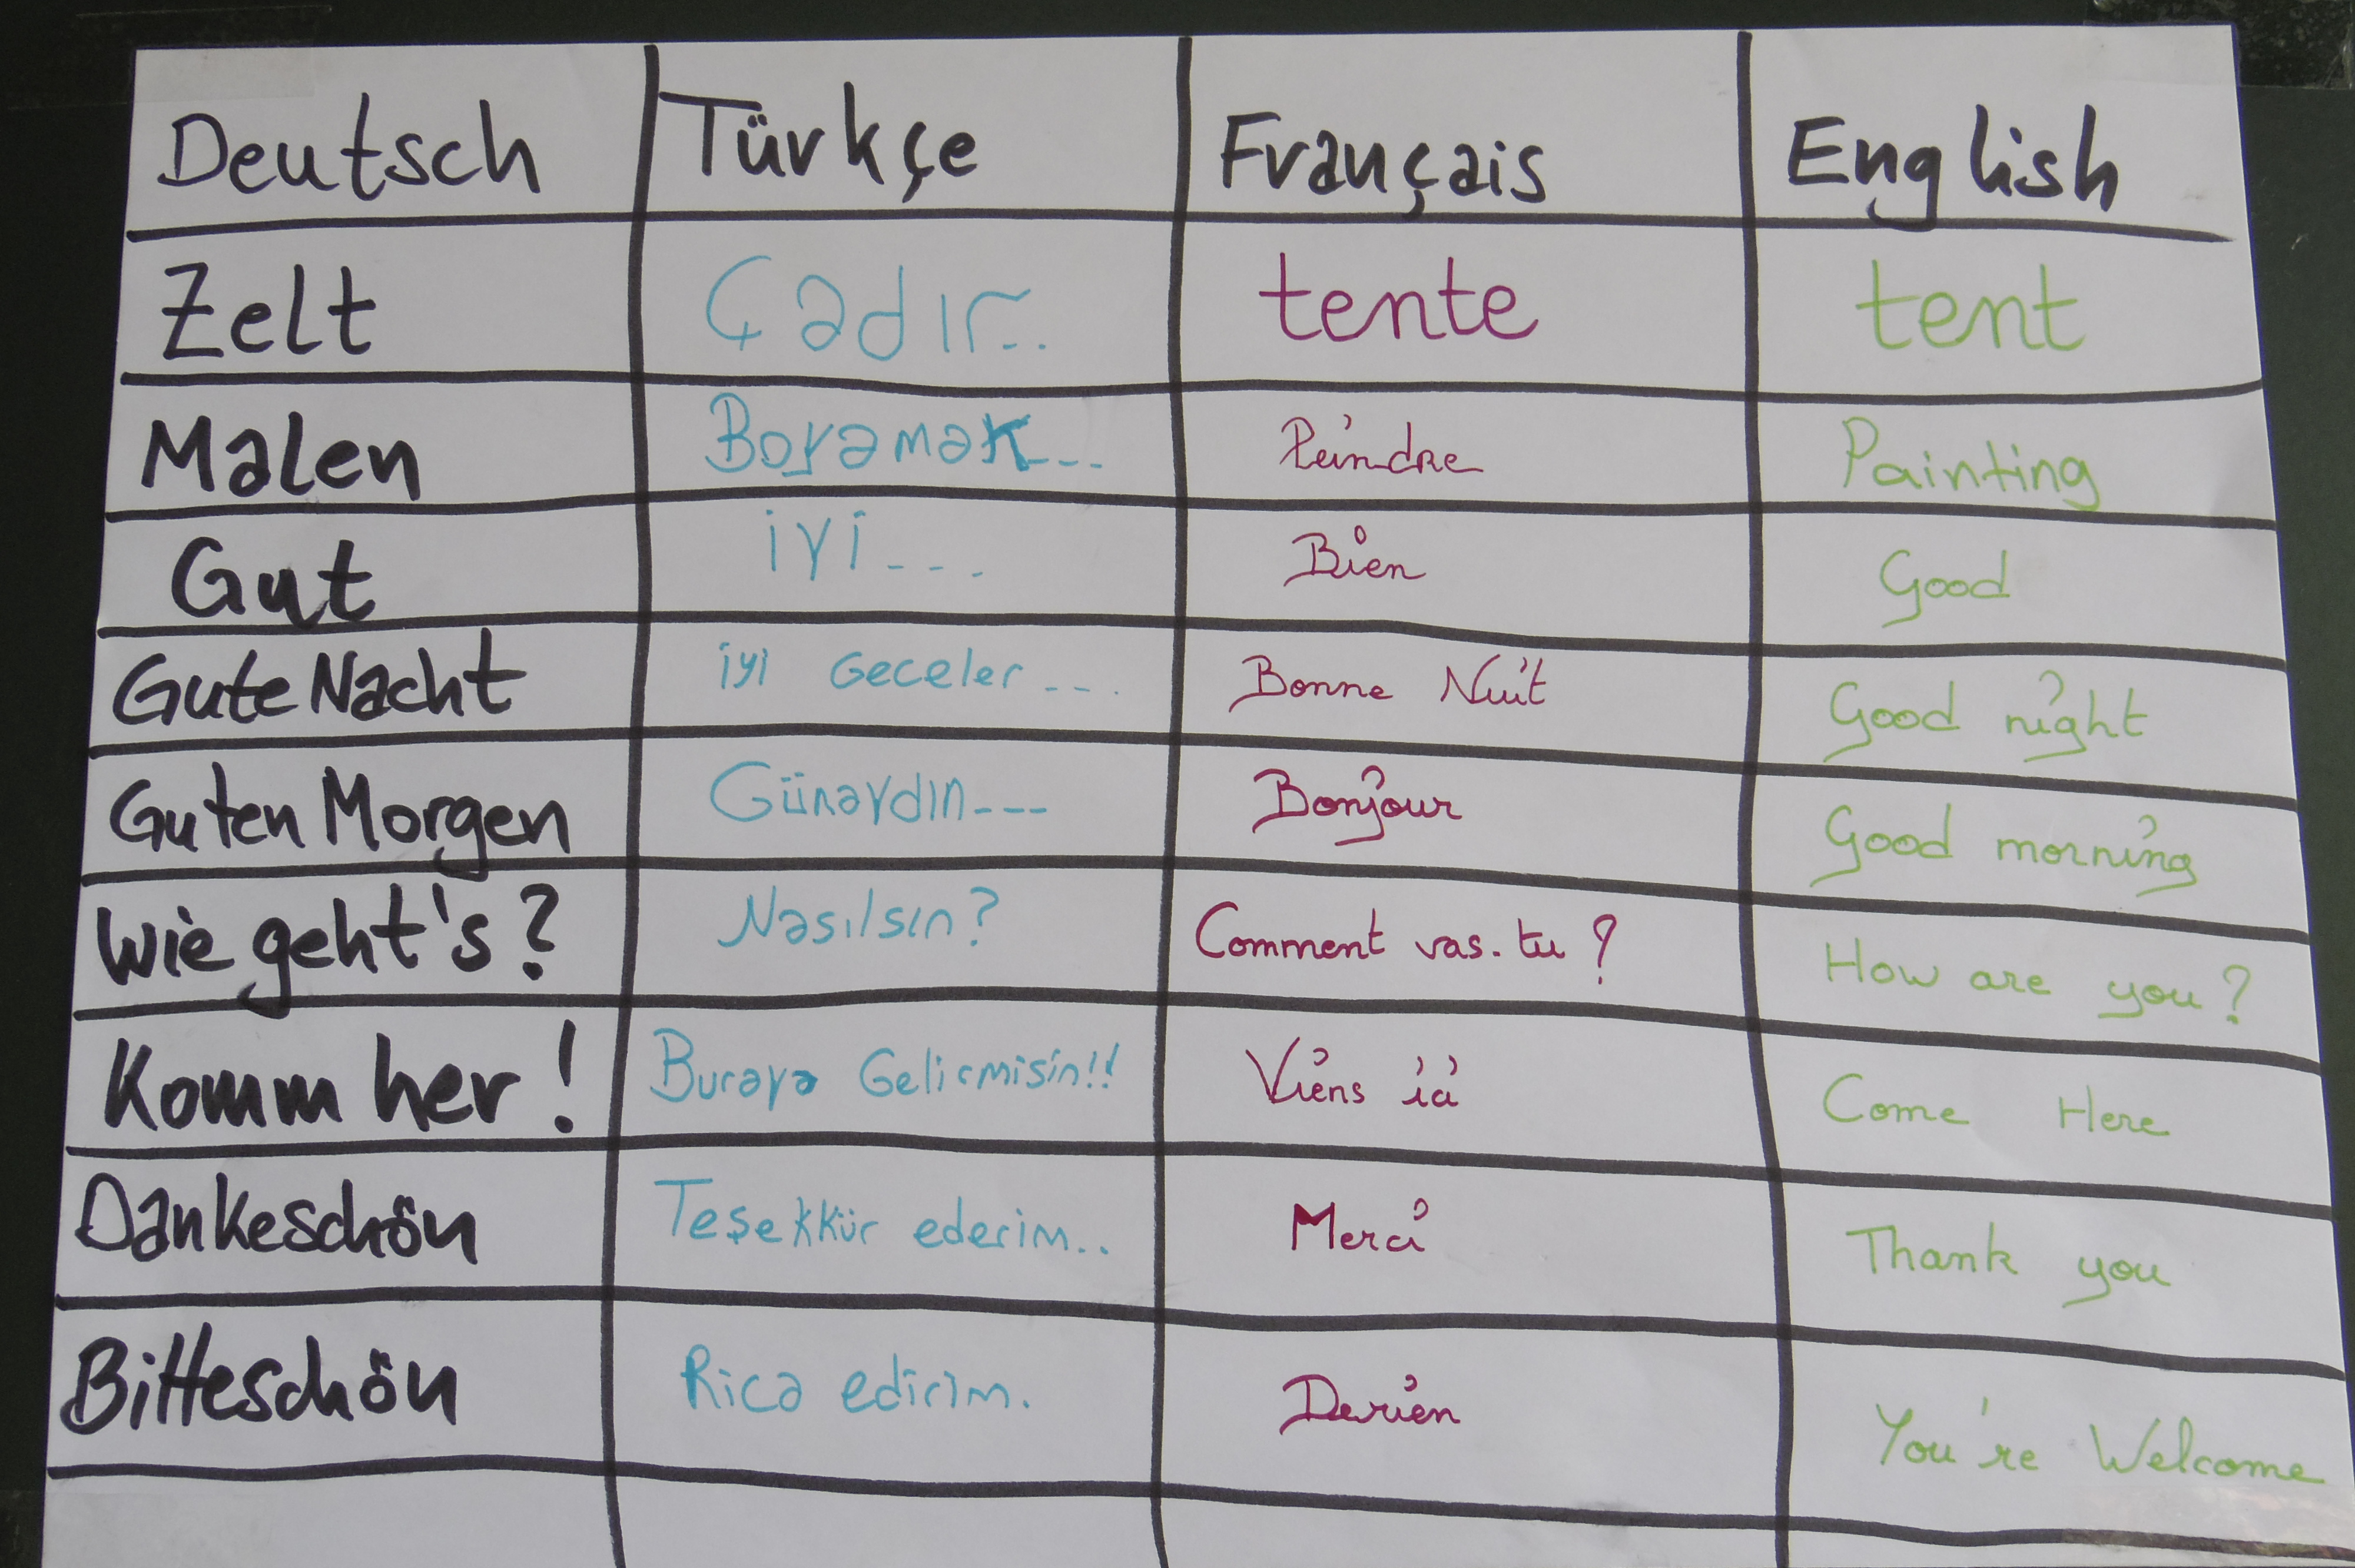 Deutsch Türkçe Français English
Zelt Çadır.. tente tent
Malen Boyamak--- Peindre Painting
Gut iyi--- Bien Good
Gute Nacht iyi Geceler --. Bonne Nuit Good night
Guten Morgen Günaydın--- Bonjour Good morning
Wie geht's? Nasılsın? Comment vas-tu ? How are you?
Komm her! Buraya Gelirmisin!! Viens ici Come Here
Dankeschön Teşekkür ederim.. Merci Thank you
Bitteschön Rica edirim. Derien You're Welcome